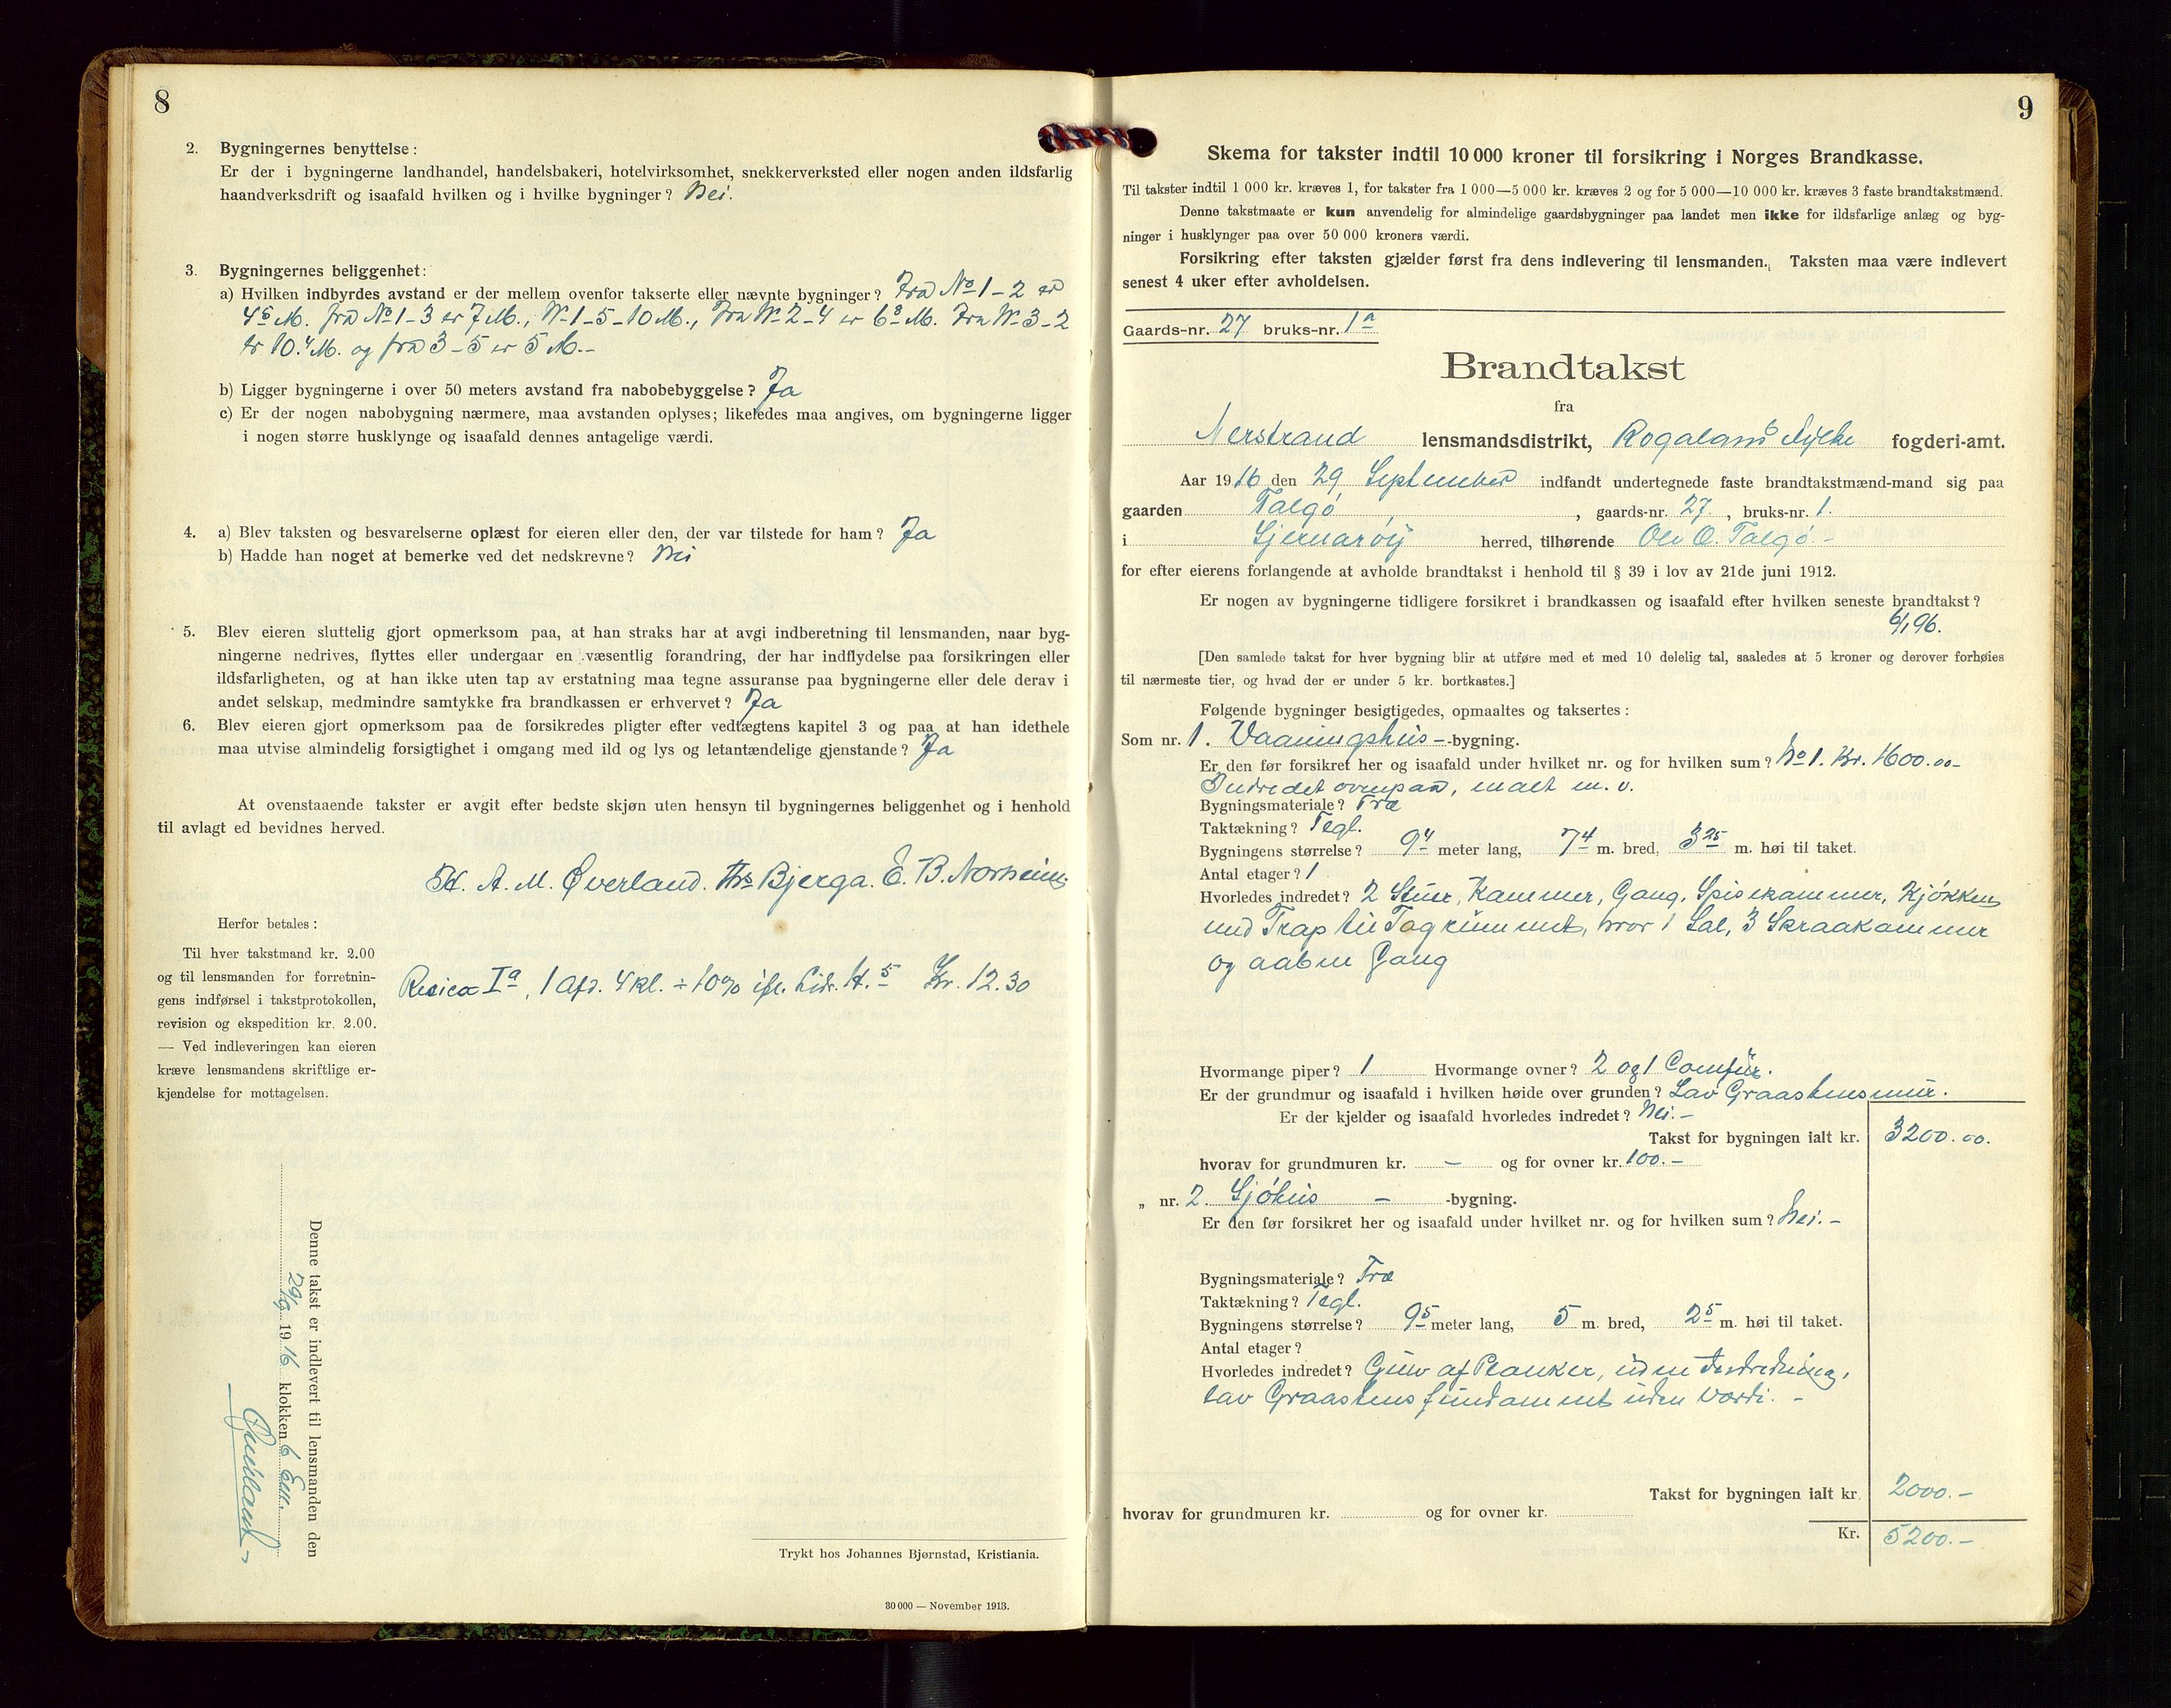 8
2. Bygningernes benyttelse:
Er der i bygningerne landhandel, handelsbakeri, hotelvirksomhet, snekkerverksted eller nogen anden ildsfarlig
haandverksdrift og isaafald hvilken og i hvilke bygninger? Nei.
3. Bygningernes beliggenhet:
a) Hvilken indbyrdes avstand er der mellem ovenfor takserte eller nævnte bygninger? Fra No 1 - 2 er
4⁵ M. fra No 1 - 3 er 7 M., N- 1 - 5 - 10 M., Fra N- 2 - 4 er 6⁸ M. Fra N- 3 - 2
er 10.⁴ M. og fra 3 - 5 er 5 M. -
b) Ligger bygningerne i over 50 meters avstand fra nabobebyggelse? Ja
c) Er der nogen nabobygning nærmere, maa avstanden oplyses; likeledes maa angives, om bygningerne ligger
i nogen større husklynge og isaafald dennes antagelige værdi.
4. a) Blev taksten og besvarelserne oplæst for eieren eller den, der var tilstede for ham? Ja
b) Hadde han noget at bemerke ved det nedskrevne? Nei
5. Blev eieren sluttelig gjort opmerksom paa, at han straks har at avgi indberetning til lensmanden, naar byg-
ningerne nedrives, flyttes eller undergaar en væsentlig forandring, der har indflydelse paa forsikringen eller
ildsfarligheten, og at han ikke uten tap av erstatning maa tegne assuranse paa bygningerne eller dele derav i
andet selskap, medmindre samtykke fra brandkassen er erhvervet? Ja
6. Blev eieren gjort opmerksom paa de forsikredes pligter efter vedtægtens kapitel 3 og paa at han idethele
maa utvise almindelig forsigtighet i omgang med ild og lys og letantændelige gjenstande? Ja
At ovenstaaende takster er avgit efter bedste skjøn uten hensyn til bygningernes beliggenhet og i henhold
til avlagt ed bevidnes herved.
A. M. Øverland. Ths Bjerga. E. B. Norheim
Herfor betales:
Til hver takstmand kr. 2.00
og til lensmanden for forretnin-
gens indførsel i takstprotokollen,
revision og ekspedition kr. 2.00.
— Ved indleveringen kan eieren
kræve lensmandens skriftlige er-
kjendelse for mottagelsen.
Risico Iª, 1 afd. 4 kl. ÷ 10% ifl. Kr. 12.30
Denne takst er indlevert til lensmanden den
29/9 1916 klokken 6 Em.
Trykt hos Johannes Bjørnstad, Kristiania.
30 000 — November 1913.
9
Skema for takster indtil 10 000 kroner til forsikring i Norges Brandkasse.
Til takster indtil 1 000 kr. kræves 1, for takster fra 1 000—5 000 kr. kræves 2 og for 5 000—10 000 kr. kræves 3 faste brandtakstmænd.
Denne takstmaate er kun anvendelig for almindelige gaardsbygninger paa landet men ikke for ildsfarlige anlæg og byg-
ninger i husklynger paa over 50 000 kroners værdi.
Forsikring efter taksten gjælder først fra dens indlevering til lensmanden. Taksten maa være indlevert
senest 4 uker efter avholdelsen.
Gaards-nr. 27 bruks-nr. 1ª
Brandtakst
fra
Nerstrand lensmandsdistrikt, Rogalands Fylke fogderi-amt.
Aar 1916 den 29 September indfandt undertegnede faste brandtakstmænd-mand sig paa
gaarden Talgø, gaards-nr. 27., bruks-nr. 1.
i Sjernarøy herred, tilhørende Ole O. Talgø -
for efter eierens forlangende at avholde brandtakst i henhold til § 39 i lov av 21de juni 1912.
Er nogen av bygningerne tidligere forsikret i brandkassen og isaafald efter hvilken seneste brandtakst?
6/1 96.
[Den samlede takst for hver bygning blir at utføre med et med 10 delelig tal, saaledes at 5 kroner og derover forhøies
til nærmeste tier, og hvad der er under 5 kr. bortkastes.]
Følgende bygninger besigtigedes, opmaaltes og taksertes:
Som nr. 1. Vaaningshus - -bygning.
Er den før forsikret her og isaafald under hvilket nr. og for hvilken sum? No 1. Kr. 1600.00 -
Indredet ovenpaa, malt m. v.
Bygningsmateriale? Træ
Taktækning? Tegl.
Bygningens størrelse? 9⁴ meter lang, 7⁴ m. bred, 3²⁵ m. høi til taket.
Antal etager? 1
Hvorledes indredet? 2 Stuer, Kammer, Gang, Spisekammer, Kjøkken
med Trap til Tagrummet, hvor 1 Sal, 3 Skraakammer
og aaben Gang
Hvormange piper? 1 Hvormange ovner? 2 og 1 Comfür.
Er der grundmur og isaafald i hvilken høide over grunden? Lav Graastensmur.
Er der kjelder og isaafald hvorledes indredet? Nei. -
Takst for bygningen ialt kr. 3200.00.
hvorav for grundmuren kr. - og for ovner kr. 100. -
„ nr. 2. Sjøhus - -bygning.
Er den før forsikret her og isaafald under hvilket nr. og for hvilken sum? Nei. -
Bygningsmateriale? Træ
Taktækning? Tegl.
Bygningens størrelse? 9⁵ meter lang, 5 m. bred, 2⁵ m. høi til taket.
Antal etager?
Hvorledes indredet? Gulv af Planker, uden Indredning,
lav Graastens fundament uden Værdi. -
Takst for bygningen ialt kr. 2000. -
hvorav for grundmuren kr. og for ovner kr.
Kr. 5200. -